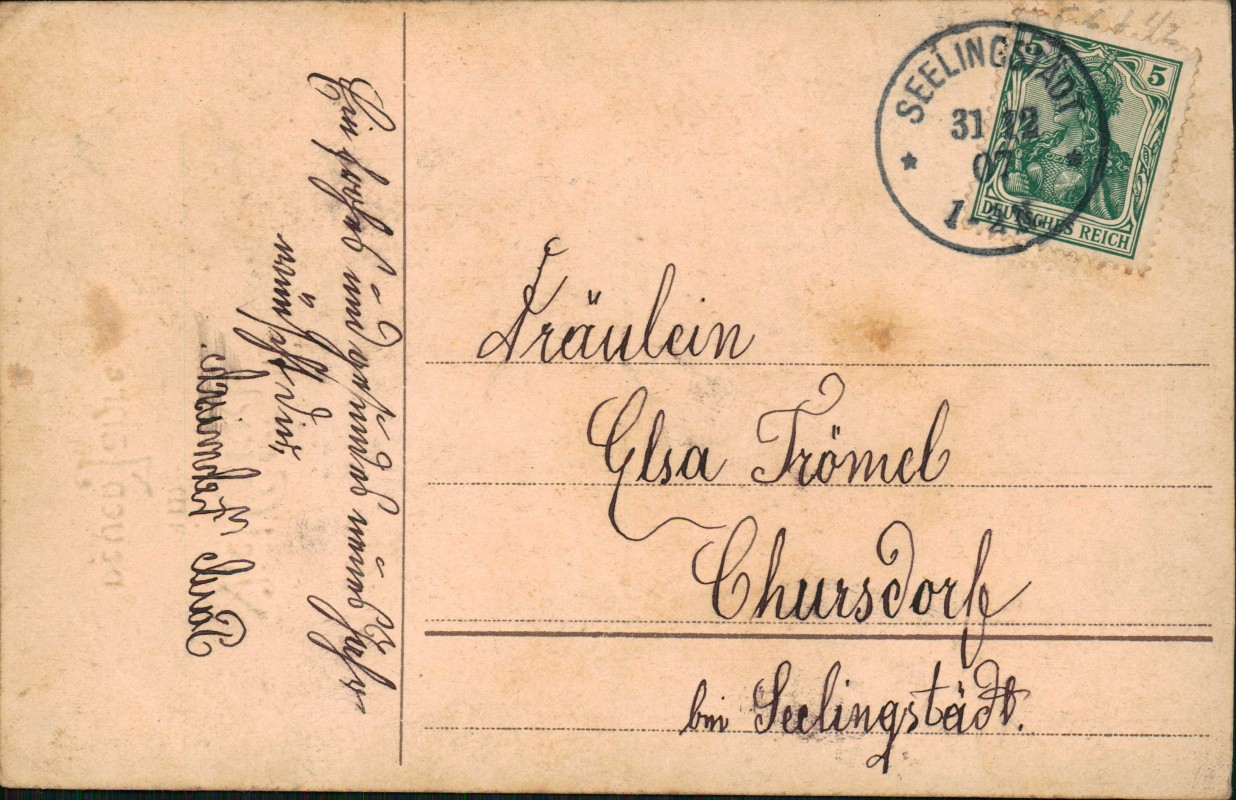 SEELINGSTÄDT
31 12
07
5
5
DEUTSCHES REICH
Ein frohes und gesundes neues Jahr
wünscht dir,
Paul
Fräulein
Elsa Trömel
Chursdorf
bei Seelingstädt.